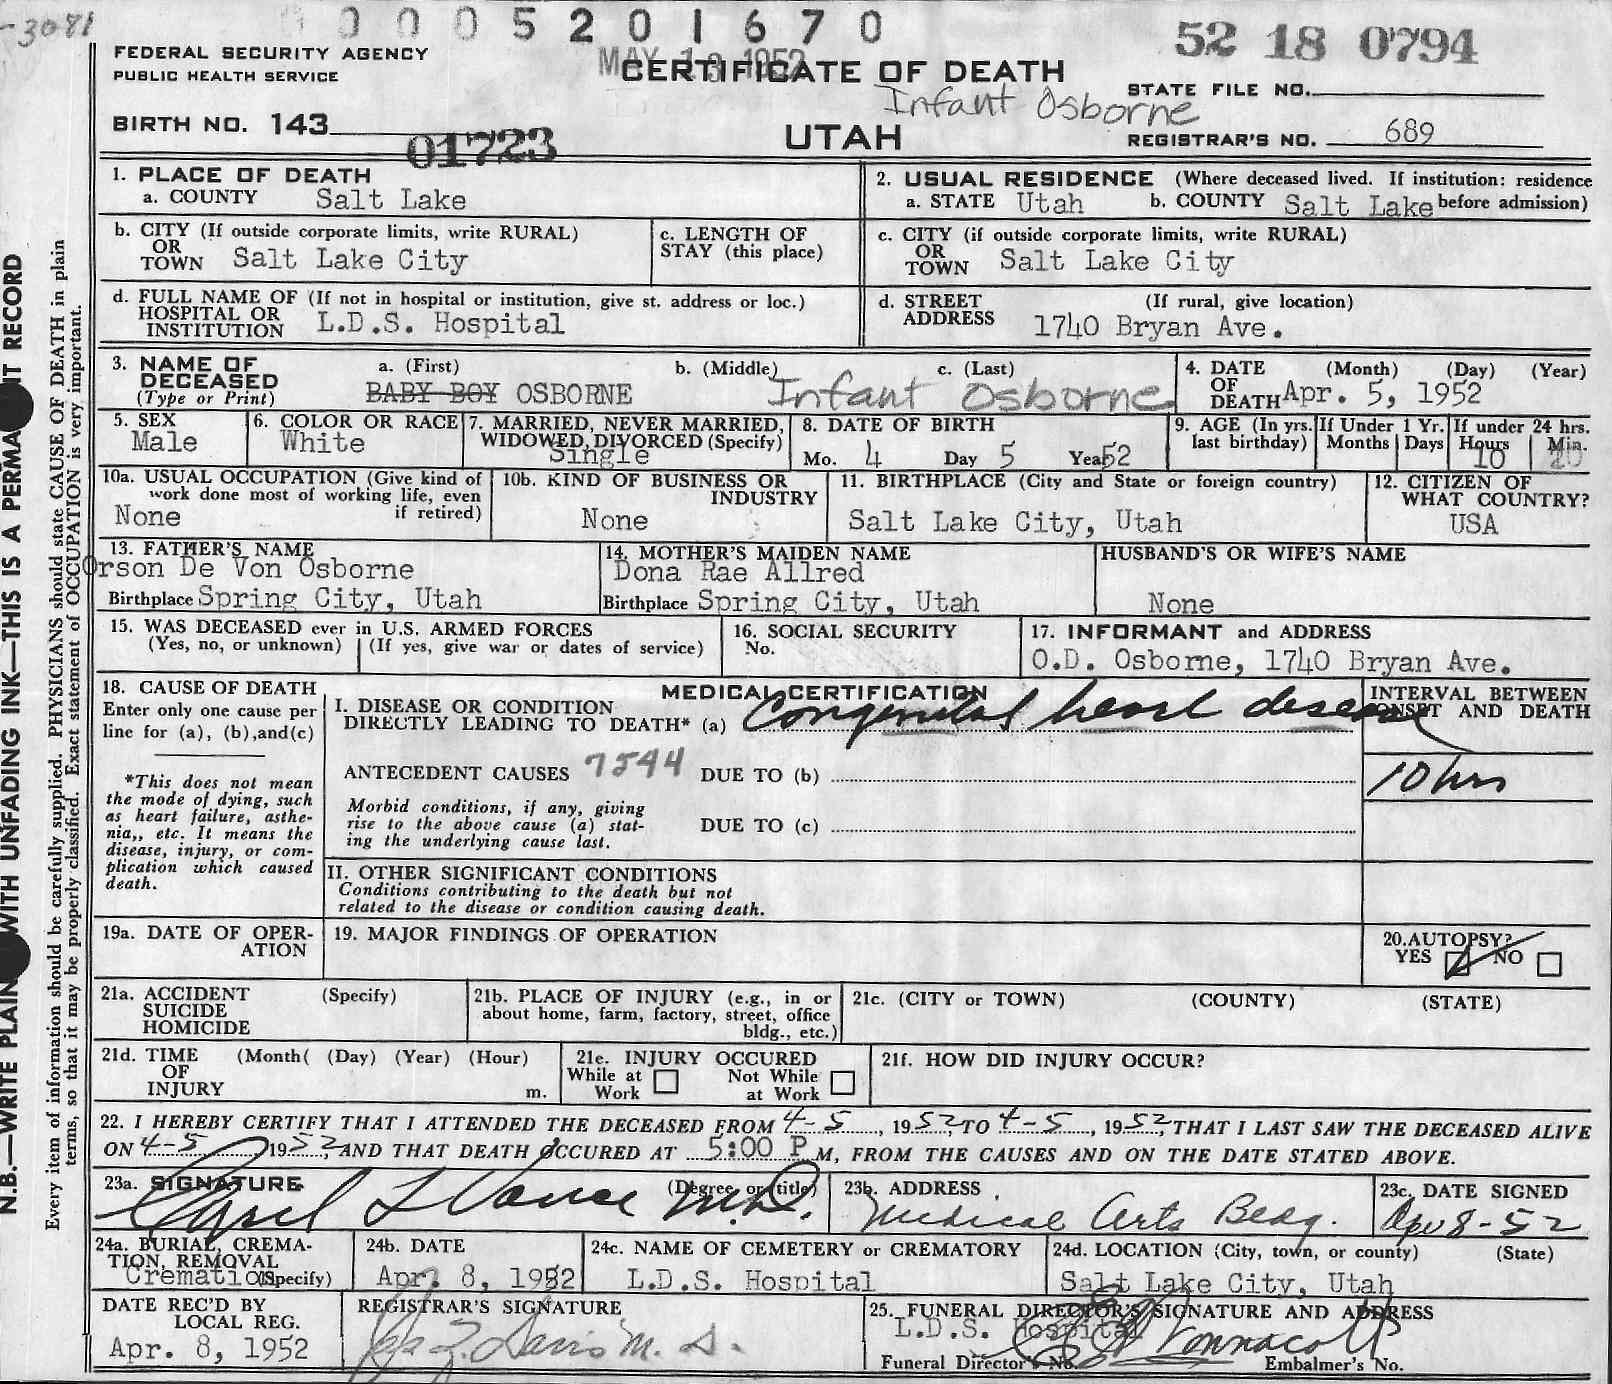 -3081
0 0 0 5 2 0 1 6 7 0
52 18 0794
FEDERAL SECURITY AGENCY
PUBLIC HEALTH SERVICE
MAY 13 1952
CERTIFICATE OF DEATH
Infant Osborne
UTAH
STATE FILE NO.
BIRTH NO. 143
01723
REGISTRAR'S NO. 689
1. PLACE OF DEATH
a. COUNTY Salt Lake
2. USUAL RESIDENCE (Where deceased lived. If institution: residence
a. STATE Utah b. COUNTY Salt Lake before admission)
b. CITY (If outside corporate limits, write RURAL)
OR
TOWN Salt Lake City
c. LENGTH OF
STAY (this place)
c. CITY (if outside corporate limits, write RURAL)
OR
TOWN Salt Lake City
d. FULL NAME OF (If not in hospital or institution, give st. address or loc.)
HOSPITAL OR
INSTITUTION L.D.S. Hospital
d. STREET (If rural, give location)
ADDRESS 1740 Bryan Ave.
3. NAME OF a. (First) b. (Middle) c. (Last)
DECEASED
(Type or Print) BABY BOY OSBORNE Infant Osborne
4. DATE (Month) (Day) (Year)
OF
DEATH Apr. 5, 1952
5. SEX
Male
6. COLOR OR RACE
White
7. MARRIED, NEVER MARRIED,
WIDOWED, DIVORCED (Specify)
Single
8. DATE OF BIRTH
Mo. 4 Day 5 Year 52
9. AGE (In yrs. last birthday)
If Under 1 Yr.
Months Days
If under 24 hrs.
Hours Min.
10
10a. USUAL OCCUPATION (Give kind of
work done most of working life, even
if retired)
None
10b. KIND OF BUSINESS OR
INDUSTRY
None
11. BIRTHPLACE (City and State or foreign country)
Salt Lake City, Utah
12. CITIZEN OF
WHAT COUNTRY?
USA
13. FATHER'S NAME
Orson De Von Osborne
Birthplace Spring City, Utah
14. MOTHER'S MAIDEN NAME
Dona Rae Allred
Birthplace Spring City, Utah
HUSBAND'S OR WIFE'S NAME
None
15. WAS DECEASED ever in U.S. ARMED FORCES
(Yes, no, or unknown) (If yes, give war or dates of service)
16. SOCIAL SECURITY
No.
17. INFORMANT and ADDRESS
O.D. Osborne, 1740 Bryan Ave.
18. CAUSE OF DEATH
Enter only one cause per
line for (a), (b),and(c)
*This does not mean
the mode of dying, such
as heart failure, asthe-
nia,, etc. It means the
disease, injury, or com-
plication which caused
death.
MEDICAL CERTIFICATION
I. DISEASE OR CONDITION
DIRECTLY LEADING TO DEATH* (a) Congenital heart disease
INTERVAL BETWEEN
ONSET AND DEATH
10 hrs
ANTECEDENT CAUSES 7544 DUE TO (b)
Morbid conditions, if any, giving
rise to the above cause (a) stat-
ing the underlying cause last.
DUE TO (c)
II. OTHER SIGNIFICANT CONDITIONS
Conditions contributing to the death but not
related to the disease or condition causing death.
19a. DATE OF OPER-
ATION
19. MAJOR FINDINGS OF OPERATION
20.AUTOPSY?
YES NO
21a. ACCIDENT (Specify)
SUICIDE
HOMICIDE
21b. PLACE OF INJURY (e.g., in or
about home, farm, factory, street, office
bldg., etc.)
21c. (CITY or TOWN) (COUNTY) (STATE)
21d. TIME (Month( (Day) (Year) (Hour)
OF
INJURY m.
21e. INJURY OCCURED
While at Work
Not While at Work
21f. HOW DID INJURY OCCUR?
22. I HEREBY CERTIFY THAT I ATTENDED THE DECEASED FROM 4-5, 1952, TO 4-5, 1952, THAT I LAST SAW THE DECEASED ALIVE
ON 4-5 1952, AND THAT DEATH OCCURED AT 5:00 P M, FROM THE CAUSES AND ON THE DATE STATED ABOVE.
23a. SIGNATURE (Degree or title)
Vance M.D.
23b. ADDRESS
Medical Arts Bldg.
23c. DATE SIGNED
Apr 8-52
24a. BURIAL, CREMA-
TION, REMOVAL
Cremation (Specify)
24b. DATE
Apr. 8, 1952
24c. NAME OF CEMETERY or CREMATORY
L.D.S. Hospital
24d. LOCATION (City, town, or county) (State)
Salt Lake City, Utah
DATE REC'D BY
LOCAL REG.
Apr. 8, 1952
REGISTRAR'S SIGNATURE
Davis M.D.
25. FUNERAL DIRECTOR'S SIGNATURE AND ADDRESS
L.D.S. Hospital
Funeral Director's No. Embalmer's No.
N.B.—WRITE PLAIN WITH UNFADING INK—THIS IS A PERMA IT RECORD
Every item of information should be carefully supplied. PHYSICIANS should state CAUSE OF DEATH in plain
terms, so that it may be properly classified. Exact statement of OCCUPATION is very important.